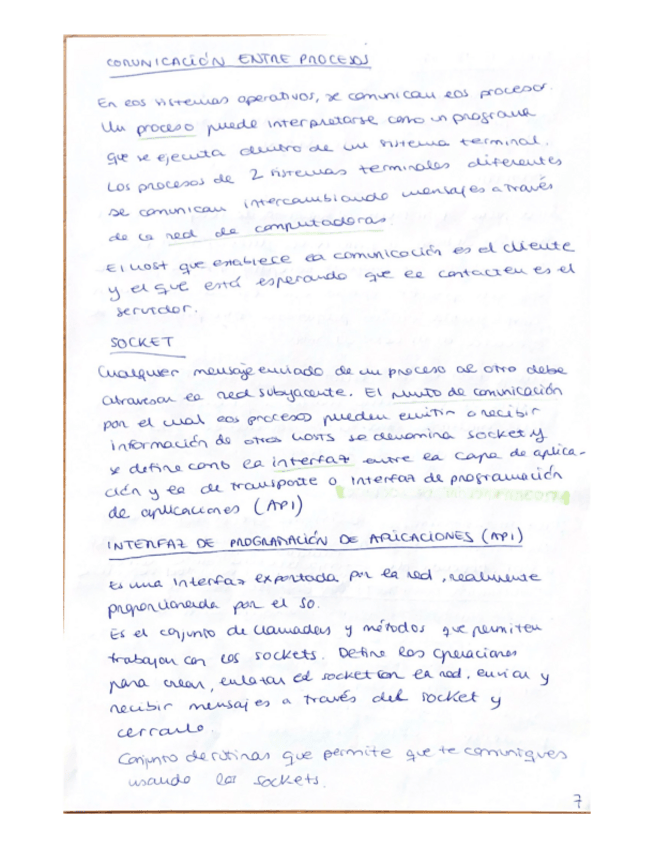 COMUNICACIÓN ENTRE PROCESOS
En los sistemas operativos, se comunican los procesos.
Un proceso puede interpretarse como un programa
que se ejecuta dentro de un sistema terminal.
Los procesos de 2 sistemas terminales diferentes
se comunican intercambiando mensajes a través
de la red de computadoras.
El host que establece la comunicación es el cliente
y el que está esperando que le contacten es el
servidor.
SOCKET
Cualquier mensaje enviado de un proceso al otro debe
atravesar la red subyacente. El punto de comunicación
por el cual los procesos pueden emitir o recibir
información de otros hosts se denomina socket y
se define como la interfaz entre la capa de aplica-
ción y la de transporte o interfaz de programación
de aplicaciones (API)
INTERFAZ DE PROGRAMACIÓN DE APLICACIONES (API)
Es una interfaz exportada por la red, realmente
proporcionada por el SO.
Es el conjunto de llamadas y métodos que permiten
trabajar con los sockets. Define las operaciones
para crear, enlazar el socket con la red, enviar y
recibir mensajes a través del socket y
cerrarlo.
Conjunto de rutinas que permite que te comuniques
usando los sockets.
7